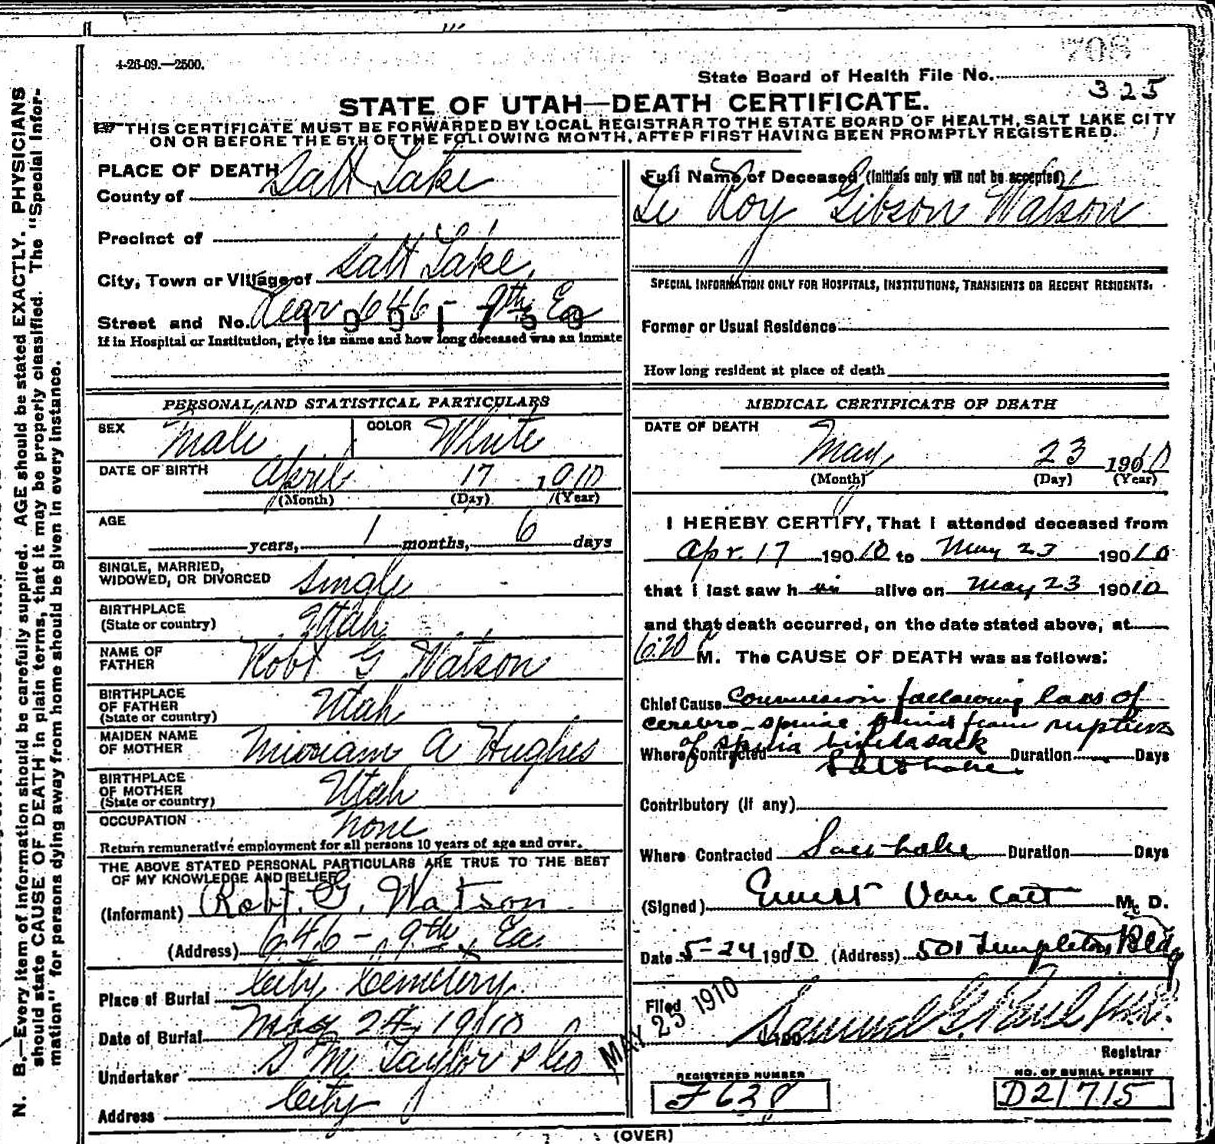 4-26-09.—2500.
708
State Board of Health File No.
325
STATE OF UTAH—DEATH CERTIFICATE.
THIS CERTIFICATE MUST BE FORWARDED BY LOCAL REGISTRAR TO THE STATE BOARD OF HEALTH, SALT LAKE CITY
ON OR BEFORE THE 5TH OF THE FOLLOWING MONTH, AFTER FIRST HAVING BEEN PROMPTLY REGISTERED.
N. B.—Every item of information should be carefully supplied. AGE should be stated EXACTLY. PHYSICIANS
should state CAUSE OF DEATH in plain terms, that it may be properly classified. The "Special Infor-
mation" for persons dying away from home should be given in every instance.
PLACE OF DEATH
County of Salt Lake
Precinct of
City, Town or Village of Salt Lake
Street and No. Rear 646 - 9th Ea
If in Hospital or Institution, give its name and how long deceased was an inmate
PERSONAL AND STATISTICAL PARTICULARS
SEX Male COLOR White
DATE OF BIRTH April 17 1910
(Month) (Day) (Year)
AGE
years, 1 months, 6 days
SINGLE, MARRIED,
WIDOWED, OR DIVORCED Single
BIRTHPLACE
(State or country) Utah
NAME OF
FATHER Robt G Watson
BIRTHPLACE
OF FATHER
(State or country) Utah
MAIDEN NAME
OF MOTHER Miriam A Hughes
BIRTHPLACE
OF MOTHER
(State or country) Utah
OCCUPATION none
Return remunerative employment for all persons 10 years of age and over.
THE ABOVE STATED PERSONAL PARTICULARS ARE TRUE TO THE BEST
OF MY KNOWLEDGE AND BELIEF
(Informant) Robt. G. Watson
(Address) 646 - 9th Ea.
Place of Burial City Cemetery
Date of Burial May 24, 1910
Undertaker S M Taylor & Co
Address City
Full Name of Deceased (Initials only will not be accepted)
Le Roy Gibson Watson
SPECIAL INFORMATION ONLY FOR HOSPITALS, INSTITUTIONS, TRANSIENTS OR RECENT RESIDENTS.
Former or Usual Residence
How long resident at place of death
MEDICAL CERTIFICATE OF DEATH
DATE OF DEATH
May 23 1910
(Month) (Day) (Year)
I HEREBY CERTIFY, That I attended deceased from
Apr. 17 190 10 to May 23 190 10
that I last saw him alive on May 23 190 10
and that death occurred, on the date stated above, at
6:20 P M. The CAUSE OF DEATH was as follows:
Chief Cause Convulsion following loss of
cerebro-spinal fluid from rupture
of spina bifida sack
Where Contracted Salt Lake Duration Days
Contributory (if any)
Where Contracted Salt Lake Duration Days
(Signed) Ernest Van Cott M. D.
Date 5-24 1910 (Address) 501 Templeton Bldg
Filed MAY 25 1910
Samuel G. Paul M.D.
Registrar
REGISTERED NUMBER
F638
NO. OF BURIAL PERMIT
D21715
(OVER)